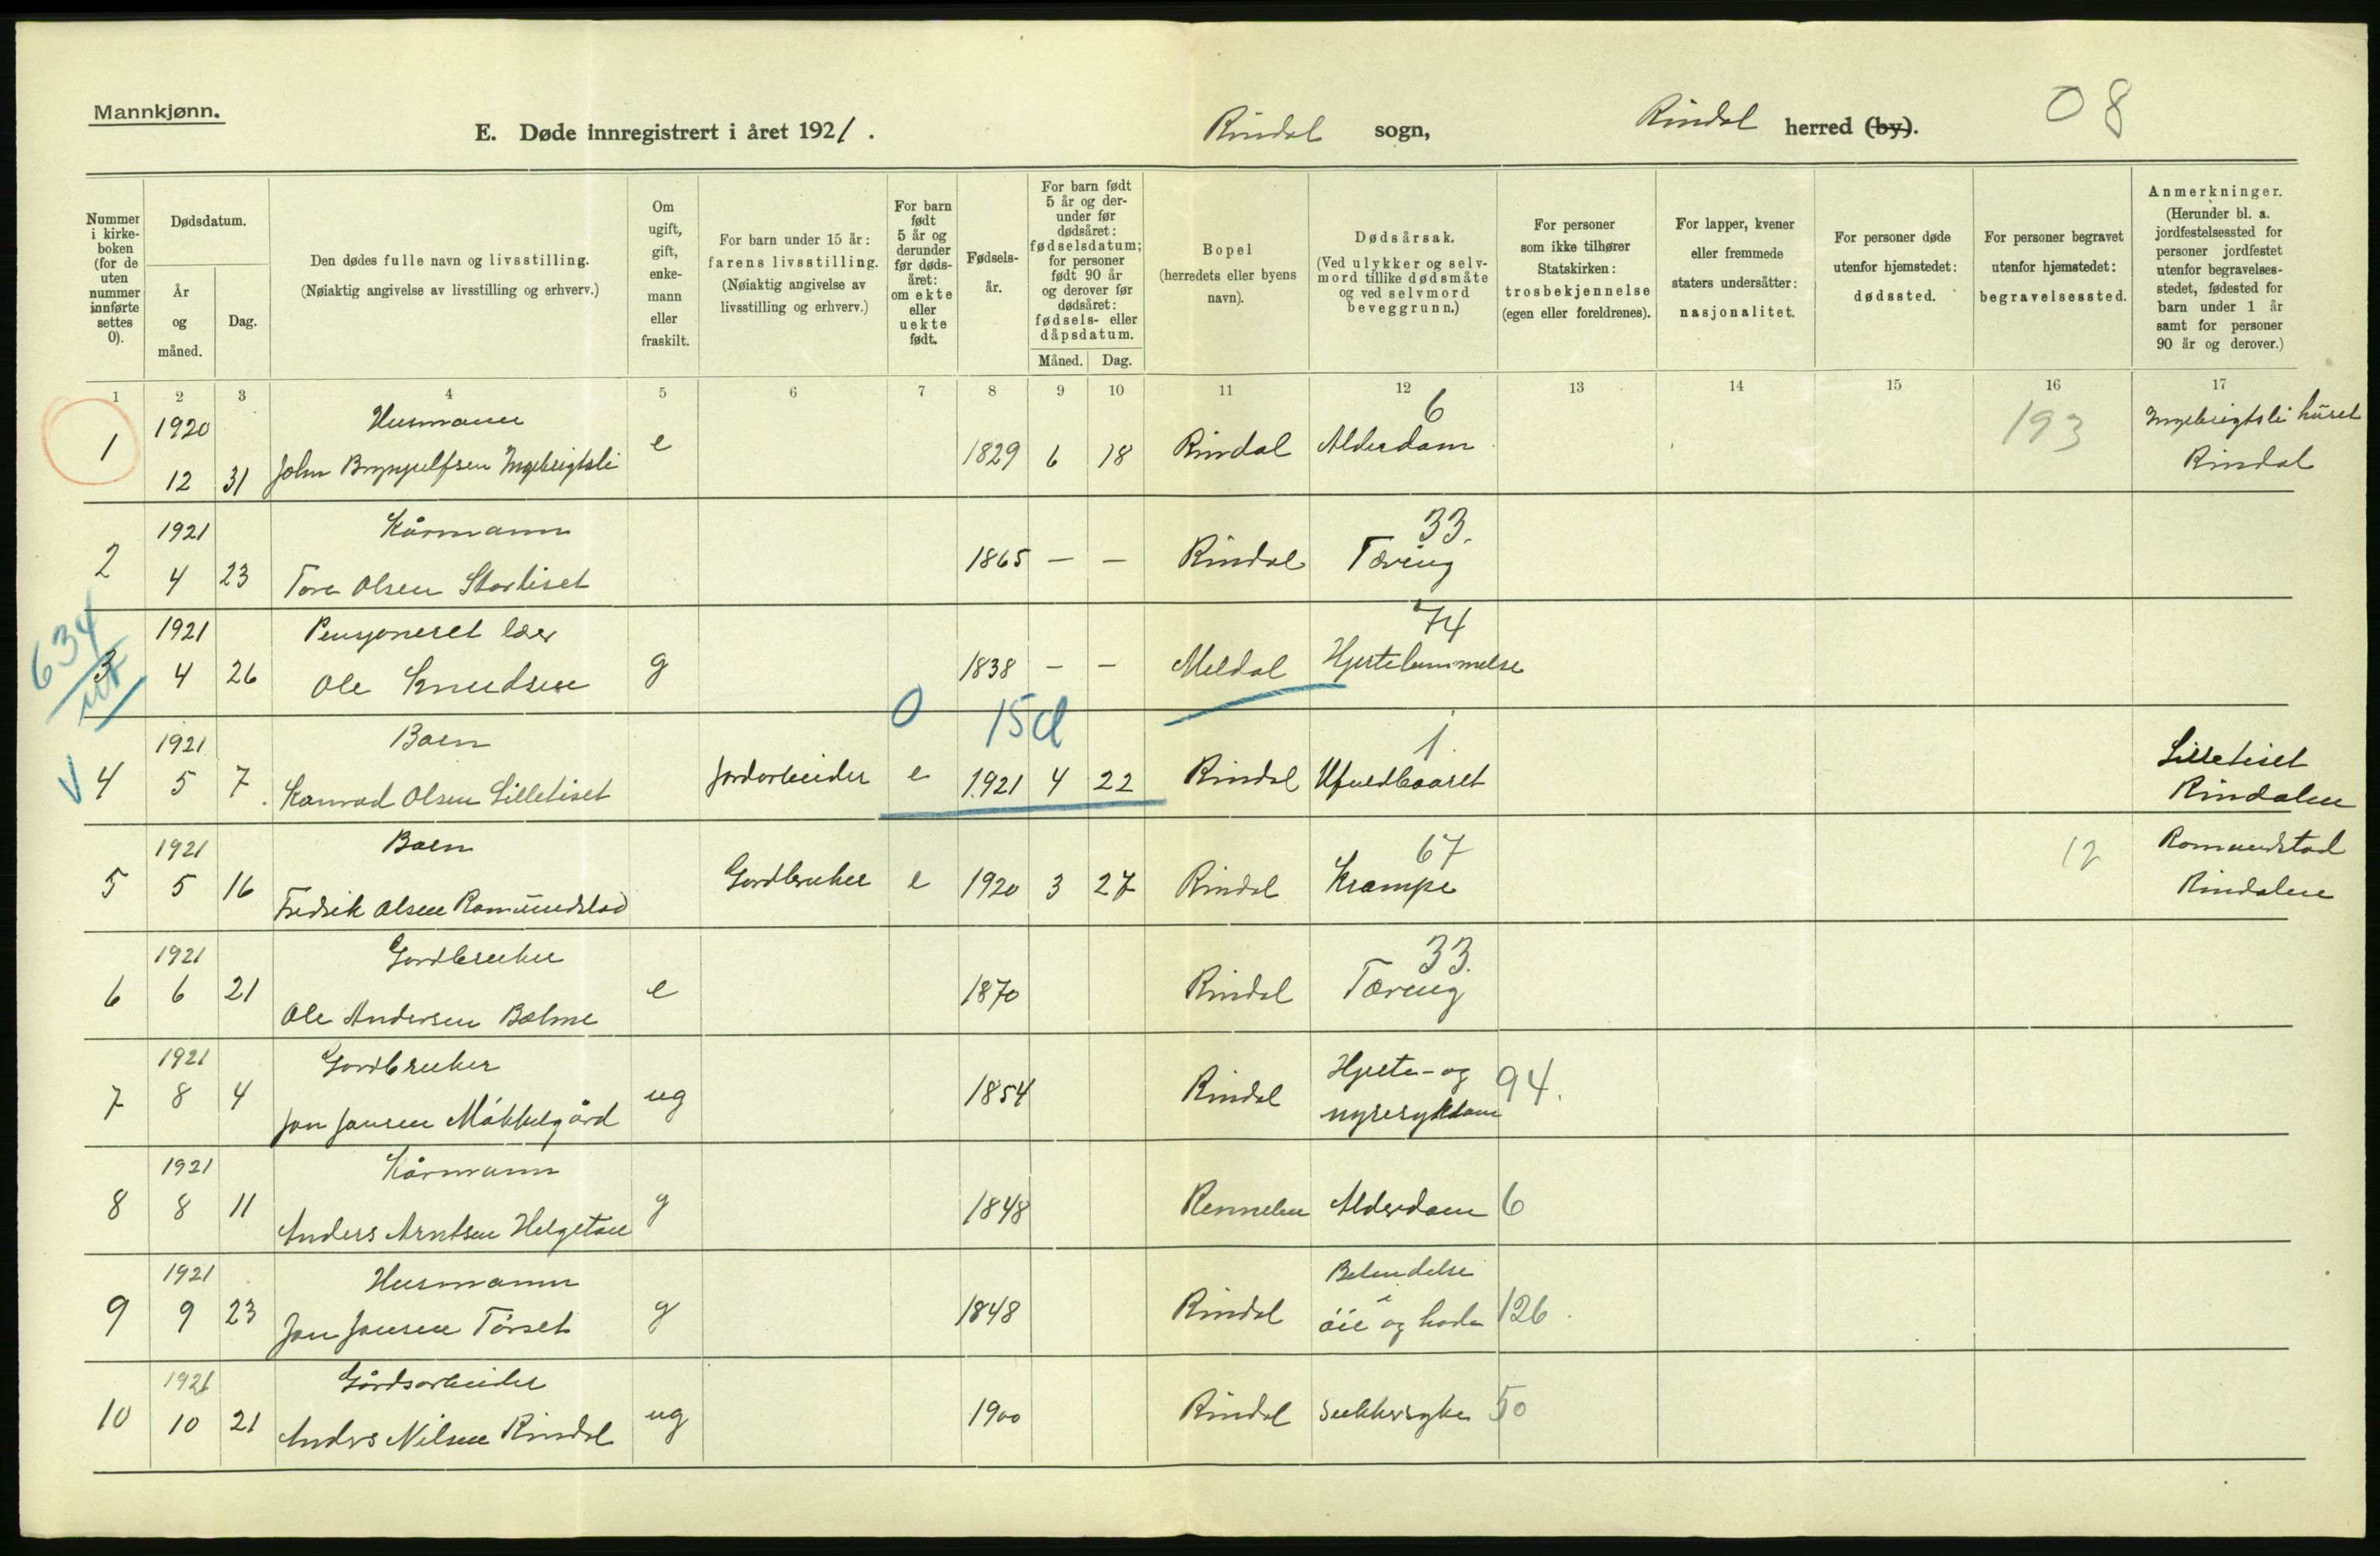 Mannkjønn.
E. Døde innregistrert i året 1921.
Rindal sogn,
Rindal herred (by).
08
Nummer i kirkeboken (for de uten nummer innførte settes 0).
Dødsdatum.
År og måned.
Dag.
Den dødes fulle navn og livsstilling.
(Nøiaktig angivelse av livsstilling og erhverv.)
Om ugift, gift, enkemann eller fraskilt.
For barn under 15 år: farens livsstilling.
(Nøiaktig angivelse av livsstilling og erhverv.)
For barn født 5 år og derunder før dødsåret: om ekte eller uekte født.
Fødselsår.
For barn født 5 år og derunder før dødsåret: fødselsdatum; for personer født 90 år og derover før dødsåret: fødsels- eller dåpsdatum.
Måned.
Dag.
Bopel
(herredets eller byens navn).
Dødsårsak.
(Ved ulykker og selvmord tillike dødsmåte og ved selvmord beveggrunn.)
For personer som ikke tilhører Statskirken: trosbekjennelse (egen eller foreldrenes).
For lapper, kvener eller fremmede staters undersåtter: nasjonalitet.
For personer døde utenfor hjemstedet: dødssted.
For personer begravet utenfor hjemstedet: begravelsessted.
Anmerkninger.
(Herunder bl. a. jordfestelsessted for personer jordfestet utenfor begravelsesstedet, fødested for barn under 1 år samt for personer 90 år og derover.)
1 2 3 4 5 6 7 8 9 10 11 12 13 14 15 16 17
1920 Husmann 6 Ingebrigtsli huset
1 12 31 John Brynjulfsen Ingebrigtsli e 1829 6 18 Rindal Alderdom 193 Rindal
1921 Kårmann 33.
2 4 23 Tore Olsen Stortiset 1865 – – Rindal Tæring
634
1921 Pensjoneret lær 74
3 4 26 Ole Knudsen g 1838 – – Meldal Hjertelammelse
0 15d
1921 Barn 1 Lilletiset
V 4 5 7 Konrad Olsen Lilletiset Jordarbeider e 1921 4 22 Rindal Ufuldbaaret Rindalen
1921 Barn 67 Romundstad
5 5 16 Fredrik Olsen Romundstad Gardbruker e 1920 3 27 Rindal Krampe 12 Rindalen
1921 Gardbruker 33.
6 6 21 Ole Andersen Bolme e 1870 Rindal Tæring
1921 Gardbruker Hjerte- og
7 8 4 Jon Jonsen Måkkelgård ug 1854 Rindal nyresykdom 94.
1921 Kårmann
8 8 11 Anders Arntsen Helgetun g 1848 Rennebu Alderdom 6
1921 Husmann Betendelse i
9 9 23 Jon Jonsen Tørset g 1848 Rindal øie og hode 126.
1921 Gårdsarbeider
10 10 21 Anders Nilsen Rindal ug 1900 Rindal Sukkersyke 50